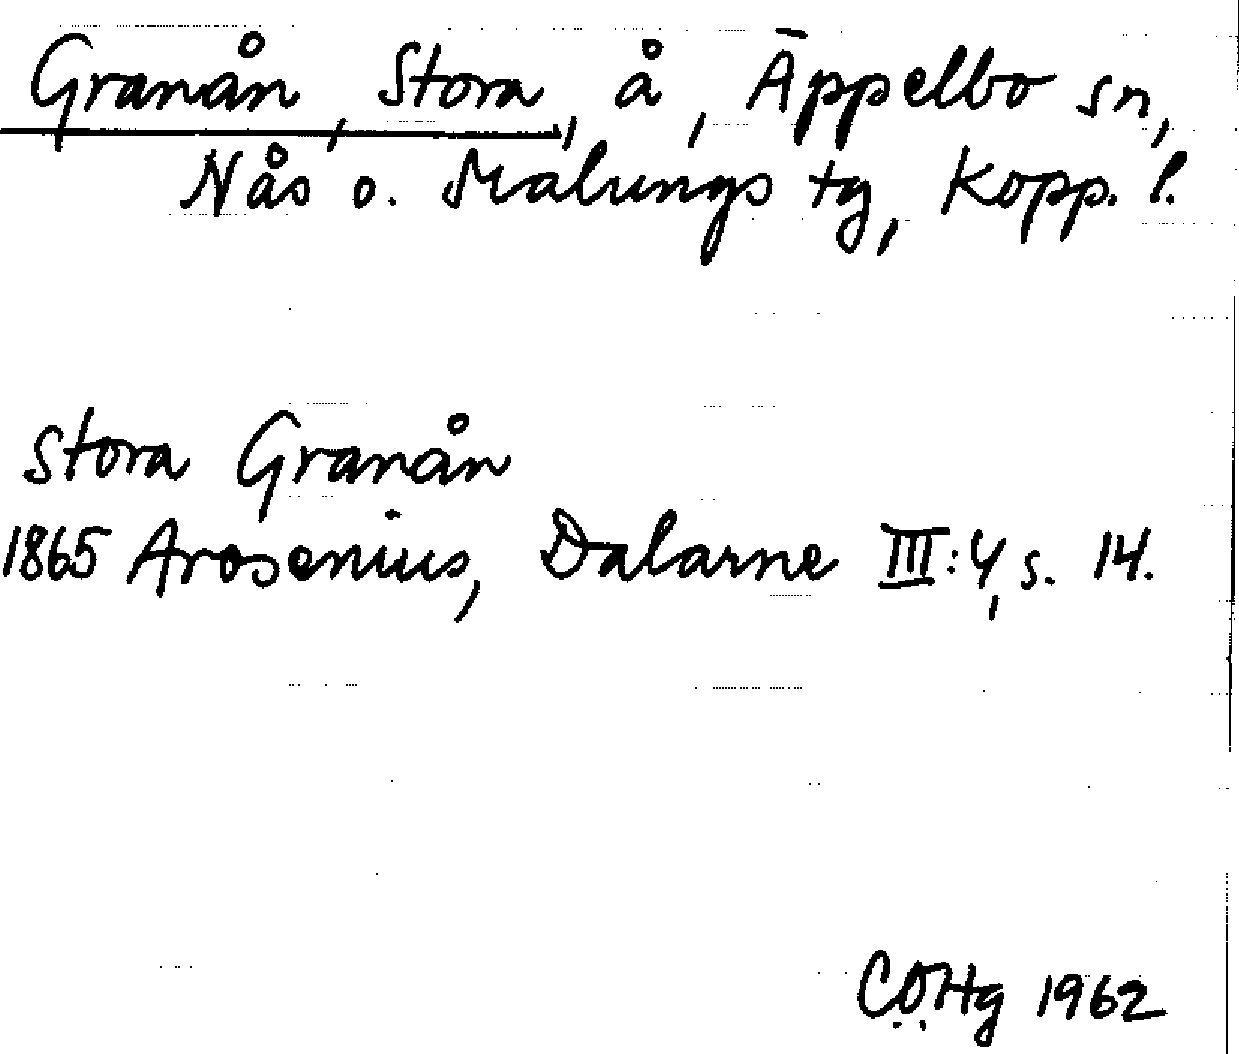 Granån, Stora, å, Äppelbo sn,
Nås o. Malungs tg, Kopp. l.
Stora Granån
1865 Arosenius, Dalarne III:4, s. 14.
CÖHg 1962